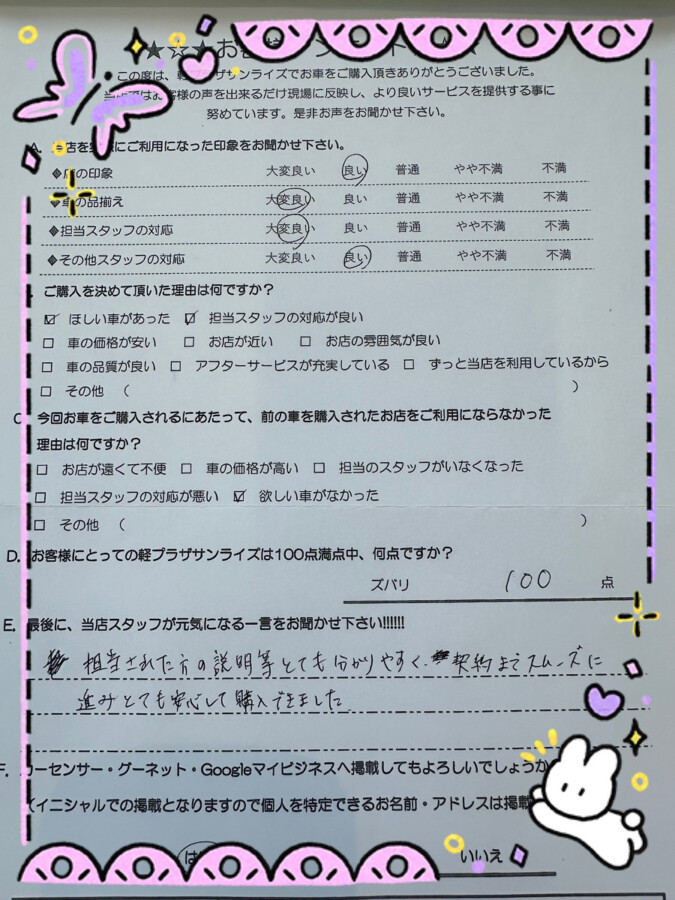 ★☆★お
この度は、軽プラザサンライズでお車をご購入頂きありがとうございました。
当店ではお客様の声を出来るだけ現場に反映し、より良いサービスを提供する事に
努めています。是非お声をお聞かせ下さい。
A. 当店を実際にご利用になった印象をお聞かせ下さい。
◆店の印象 大変良い 良い 普通 やや不満 不満
◆車の品揃え 大変良い 良い 普通 やや不満 不満
◆担当スタッフの対応 大変良い 良い 普通 やや不満 不満
◆その他スタッフの対応 大変良い 良い 普通 やや不満 不満
ご購入を決めて頂いた理由は何ですか？
☑ ほしい車があった ☑ 担当スタッフの対応が良い
□ 車の価格が安い □ お店が近い □ お店の雰囲気が良い
□ 車の品質が良い □ アフターサービスが充実している □ ずっと当店を利用しているから
□ その他 （ ）
C 今回お車をご購入されるにあたって、前の車を購入されたお店をご利用にならなかった
理由は何ですか？
□ お店が遠くて不便 □ 車の価格が高い □ 担当のスタッフがいなくなった
□ 担当スタッフの対応が悪い ☑ 欲しい車がなかった
□ その他 （ ）
D. お客様にとっての軽プラザサンライズは100点満点中、何点ですか？
ズバリ 100 点
E. 最後に、当店スタッフが元気になる一言をお聞かせ下さい!!!!!!
担当された方の説明等とても分かりやすく、契約までスムーズに
進みとても安心して購入できました
F. カーセンサー・グーネット・Googleマイビジネスへ掲載してもよろしいでしょうか
（イニシャルでの掲載となりますので個人を特定できるお名前・アドレスは掲載
は いいえ